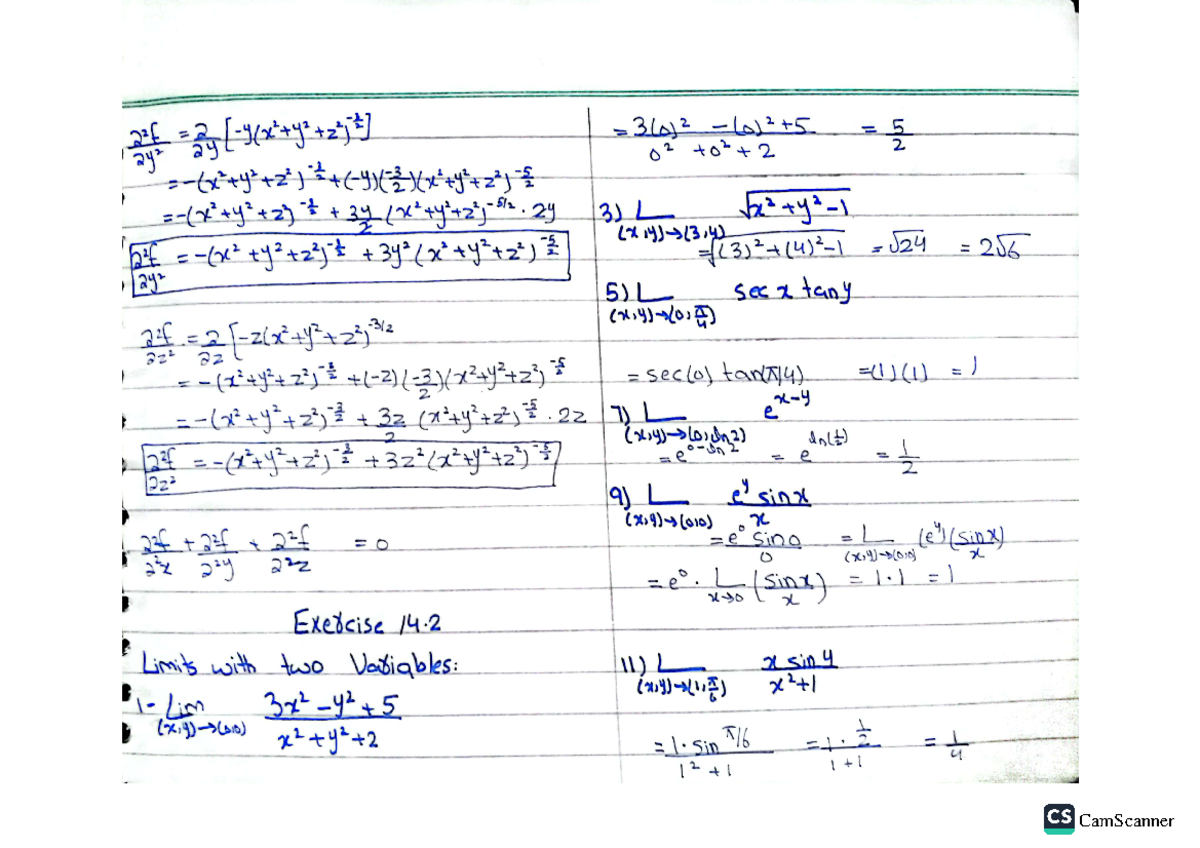 ∂²f/∂y² = ∂/∂y [-y(x²+y²+z²)^-3/2]
= -(x²+y²+z²)^-3/2 + (-y)(-3/2)(x²+y²+z²)^-5/2
= -(x²+y²+z²)^-3/2 + 3y/2 (x²+y²+z²)^-5/2 · 2y
∂²f/∂y² = -(x²+y²+z²)^-3/2 + 3y²(x²+y²+z²)^-5/2
∂²f/∂z² = ∂/∂z [-z(x²+y²+z²)^-3/2
= -(x²+y²+z²)^-3/2 + (-z)(-3/2)(x²+y²+z²)^-5/2
= -(x²+y²+z²)^-3/2 + 3z/2 (x²+y²+z²)^-5/2 · 2z
∂²f/∂z² = -(x²+y²+z²)^-3/2 + 3z²(x²+y²+z²)^-5/2
∂²f/∂²x + ∂²f/∂²y + ∂²f/∂²z = 0
Exercise 14.2
Limits with two Variables:
1- Lim (x,y)→(0,0) 3x²-y²+5 / x²+y²+2
= 3(0)² - (0)²+5 / 0²+0²+2 = 5/2
3) L (x,y)→(3,4) √x²+y²-1
= √(3)²+(4)²-1 = √24 = 2√6
5) L (x,y)→(0,π/4) sec x tan y
= sec(0) tan(π/4) = (1)(1) = 1
7) L (x,y)→(0,ln2) e^x-y
= e^0-ln2 = e^ln(1/2) = 1/2
9) L (x,y)→(0,0) e^y sinx / x
= e^0 sin0 / 0 = L (x,y)→(0,0) (e^y)(sinx/x)
= e^0 · L x→0 (sinx/x) = 1·1 = 1
11) L (x,y)→(1,π/6) x sin y / x²+1
= 1·sin π/6 / 1²+1 = 1·1/2 / 1+1 = 1/4
CS CamScanner